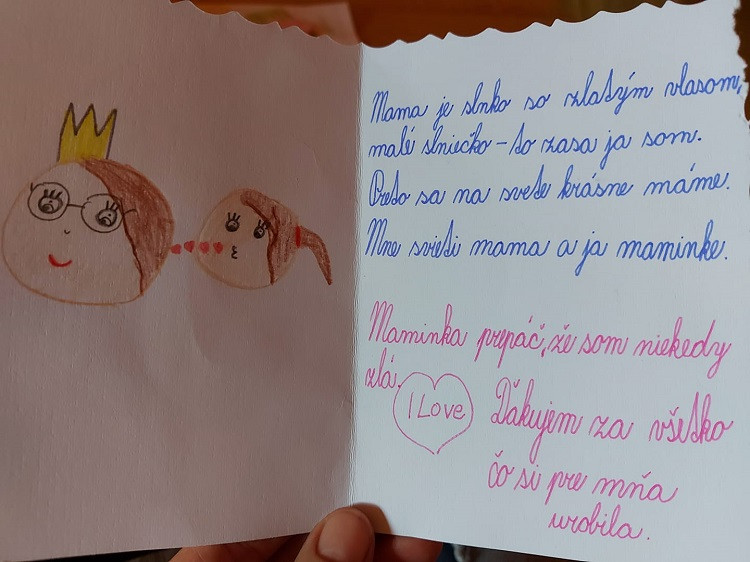 Mama je slnko so zlatým vlasom,
malé slniečko - to zasa ja som.
Preto sa na svete krásne máme.
Mne svieti mama a ja maminke.
Maminka prepáč, že som niekedy
zlá.
I Love
Ďakujem za všetko
čo si pre mňa
urobila.